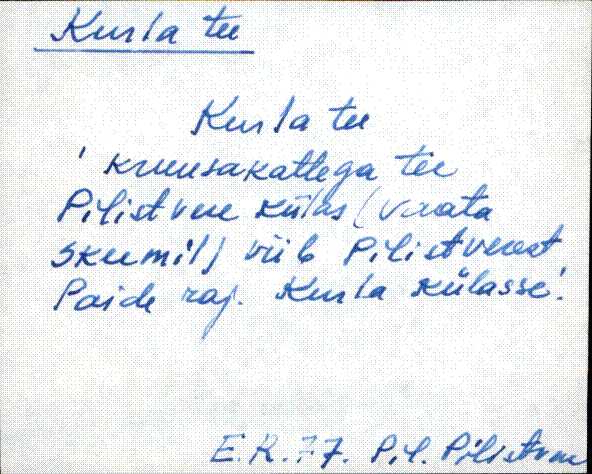 Kurla tee
Kurla tee
' kruusakattega tee
Pilistvere külas (vaata
skeemil) viib Pilistverest
Paide raj. Kurla külasse'.
E.R. 77. Pil. Pilistvere